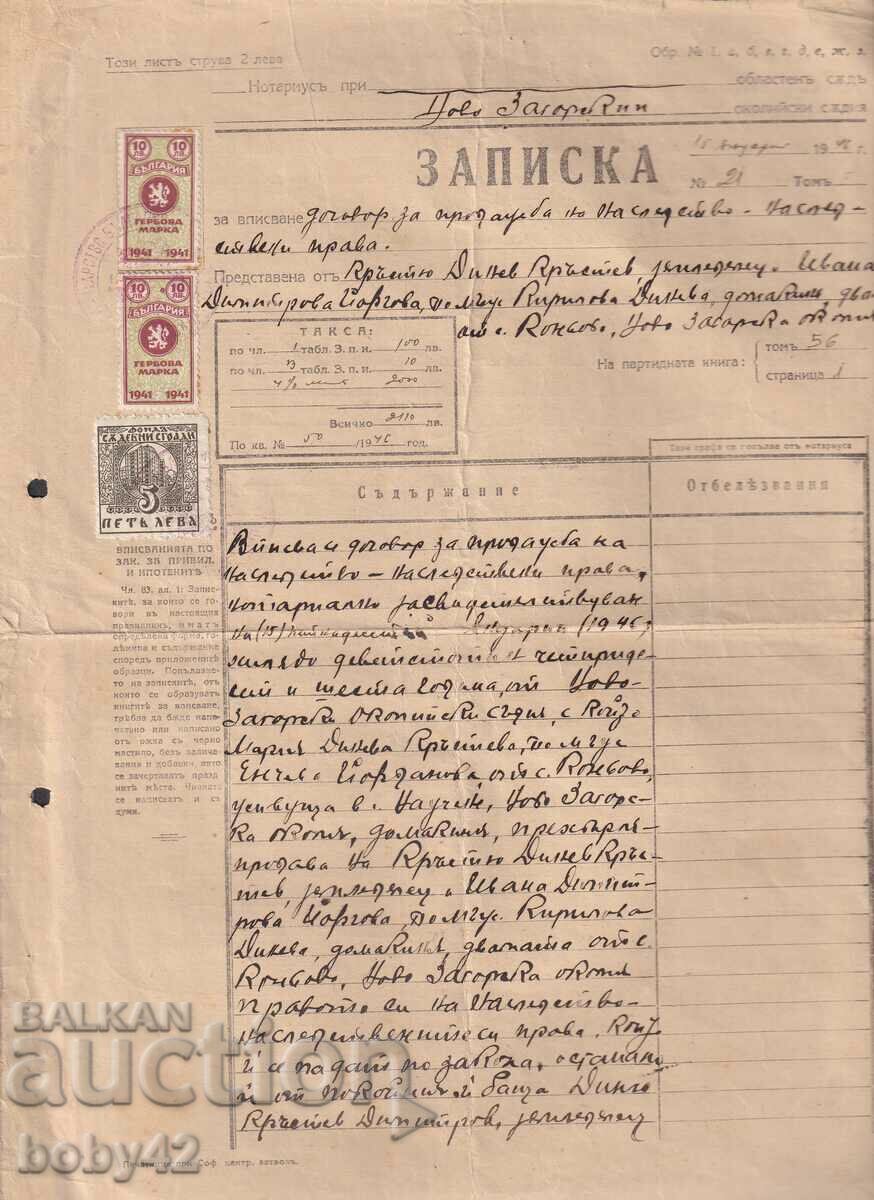 Този листъ струва 2 лева
Обр. № 1. а, б, в, г, д, е, ж, з.
Нотариусъ при
областенъ сѫдъ
Ново Загорский околийски сѫдия
ЗАПИСКА
15 Януарий 1946 г.
№ 21 Томъ
за вписване договор за продажба на наследство - наслед-
ствени права.
Представена отъ Кръстю Динев Кръстев, земледелец и Ивана
Димитрова Йоргова, по мъж Кирилова Динева, домакиня, двамата
от с. Коньово, Ново Загорска околия
ТАКСА:
по чл. 1 табл. З. п. и. 100 лв.
по чл. 13 табл. З. п. и. 10 лв.
4% 2000
Всичко 2110 лв.
По кв. № 50 / 1946 год.
На партидната книга:
томъ 56
страница 1
10 ЛВ. 10 ЛВ.
БЪЛГАРИЯ
ГЕРБОВА
МАРКА
1941 1941
10 ЛВ. 10 ЛВ.
БЪЛГАРИЯ
ГЕРБОВА
МАРКА
1941 1941
ФОНДЪ
СѪДЕБНИ СГРАДИ
5
ПЕТЬ ЛЕВА
ВПИСВАНИЯТА ПО
ЗАК. ЗА ПРИВИЛ.
И ИПОТЕКИТѢ
Чл. 83, ал. 1: Записки-
тѣ, за които се го-
вори въ настоящия
правилник, иматъ
опредѣлена форма, го-
лѣмина и съдържание
споредъ приложенитѣ
образци. Попълване-
то на записките, отъ
които се образуватъ
книгитѣ за вписване,
трѣбва да бѫде напе-
чатано или написано
отъ рѫка съ черно
мастило, безъ залича-
вания и добавки, като
се зачертаватъ празд-
нитѣ мѣста. Числата
се написватъ и съ
думи.
Тази графа се попълва отъ нотариуса
Съдържание
Отбелѣзвания
Вписва се договор за продажба на
наследство - наследствени права,
нотариално засвидетелствуван
на (15) петнадесети Януарий (1946)
хилядо деветстотин четириде-
сет и шеста година, от Ново-
Загорски околийски съдия, с който
Мария Динева Кръстева, по мъж
Енчева Йорданова, от с. Коньово,
живуща в с. Научен, Ново Загорс-
ка околия, домакиня, прехвърля-
продава на Кръстю Динев Кръс-
тев, земледелец и Ивана Димит-
рова Йоргова, по мъж Кирилова
Динева, домакиня, двамата от с.
Коньово, Ново Загорска околия
правото си на наследство-
наследствените си права, които
ѝ се падат по закона, останали
ѝ от покойния ѝ баща Диню
Кръстев Димитров, земледелец
Печатница при Соф. центр. затворъ
BALKAN
auction
boby42